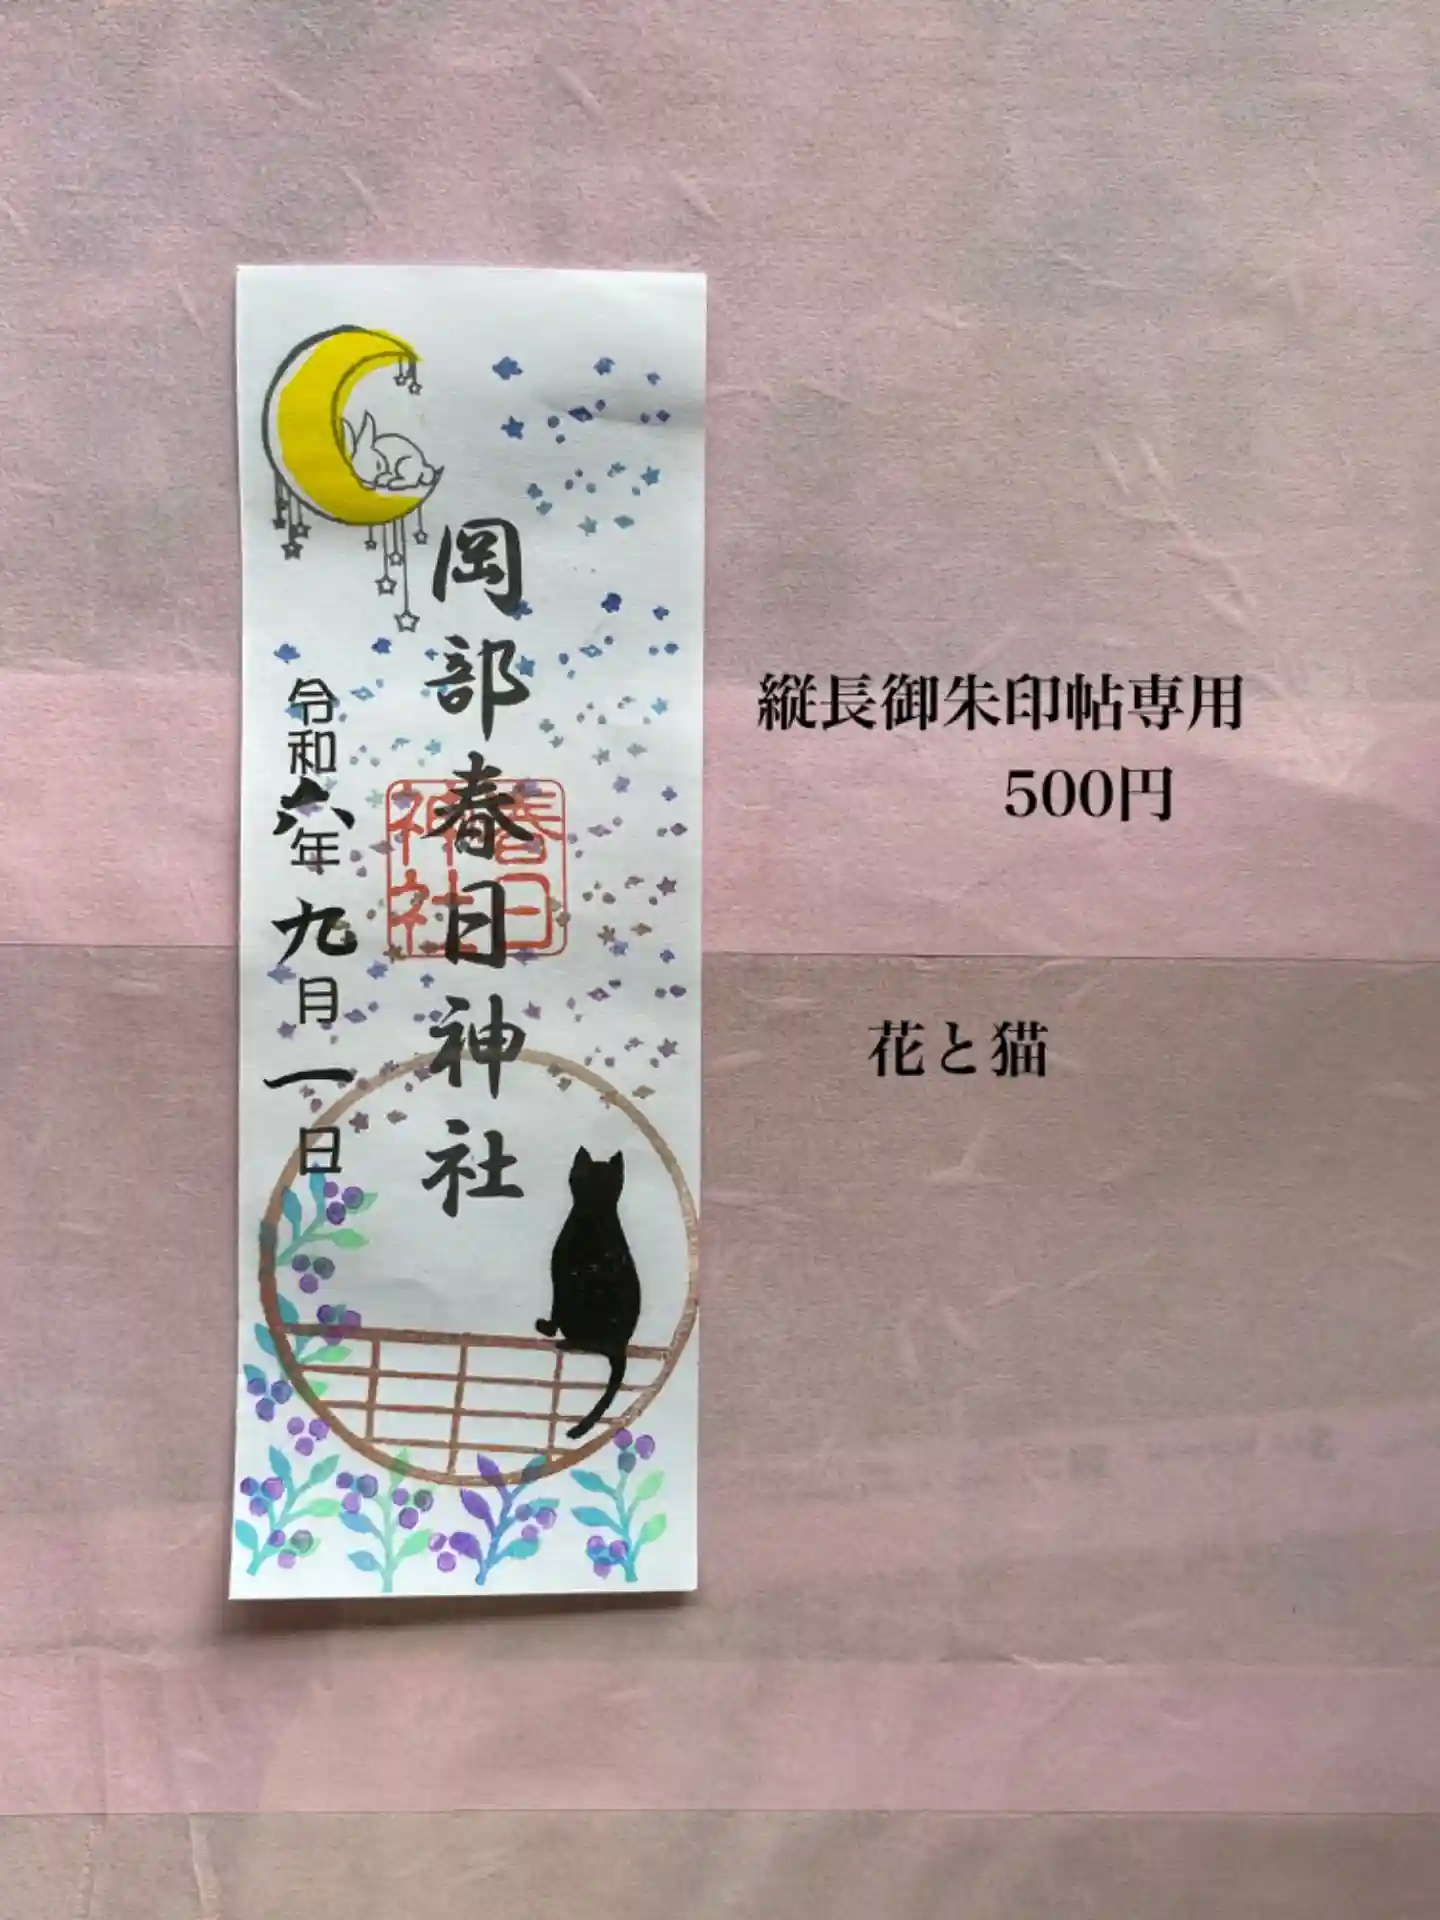 岡部春日神社
春日
神社
令和六年九月一日
縦長御朱印帖専用
500円
花と猫